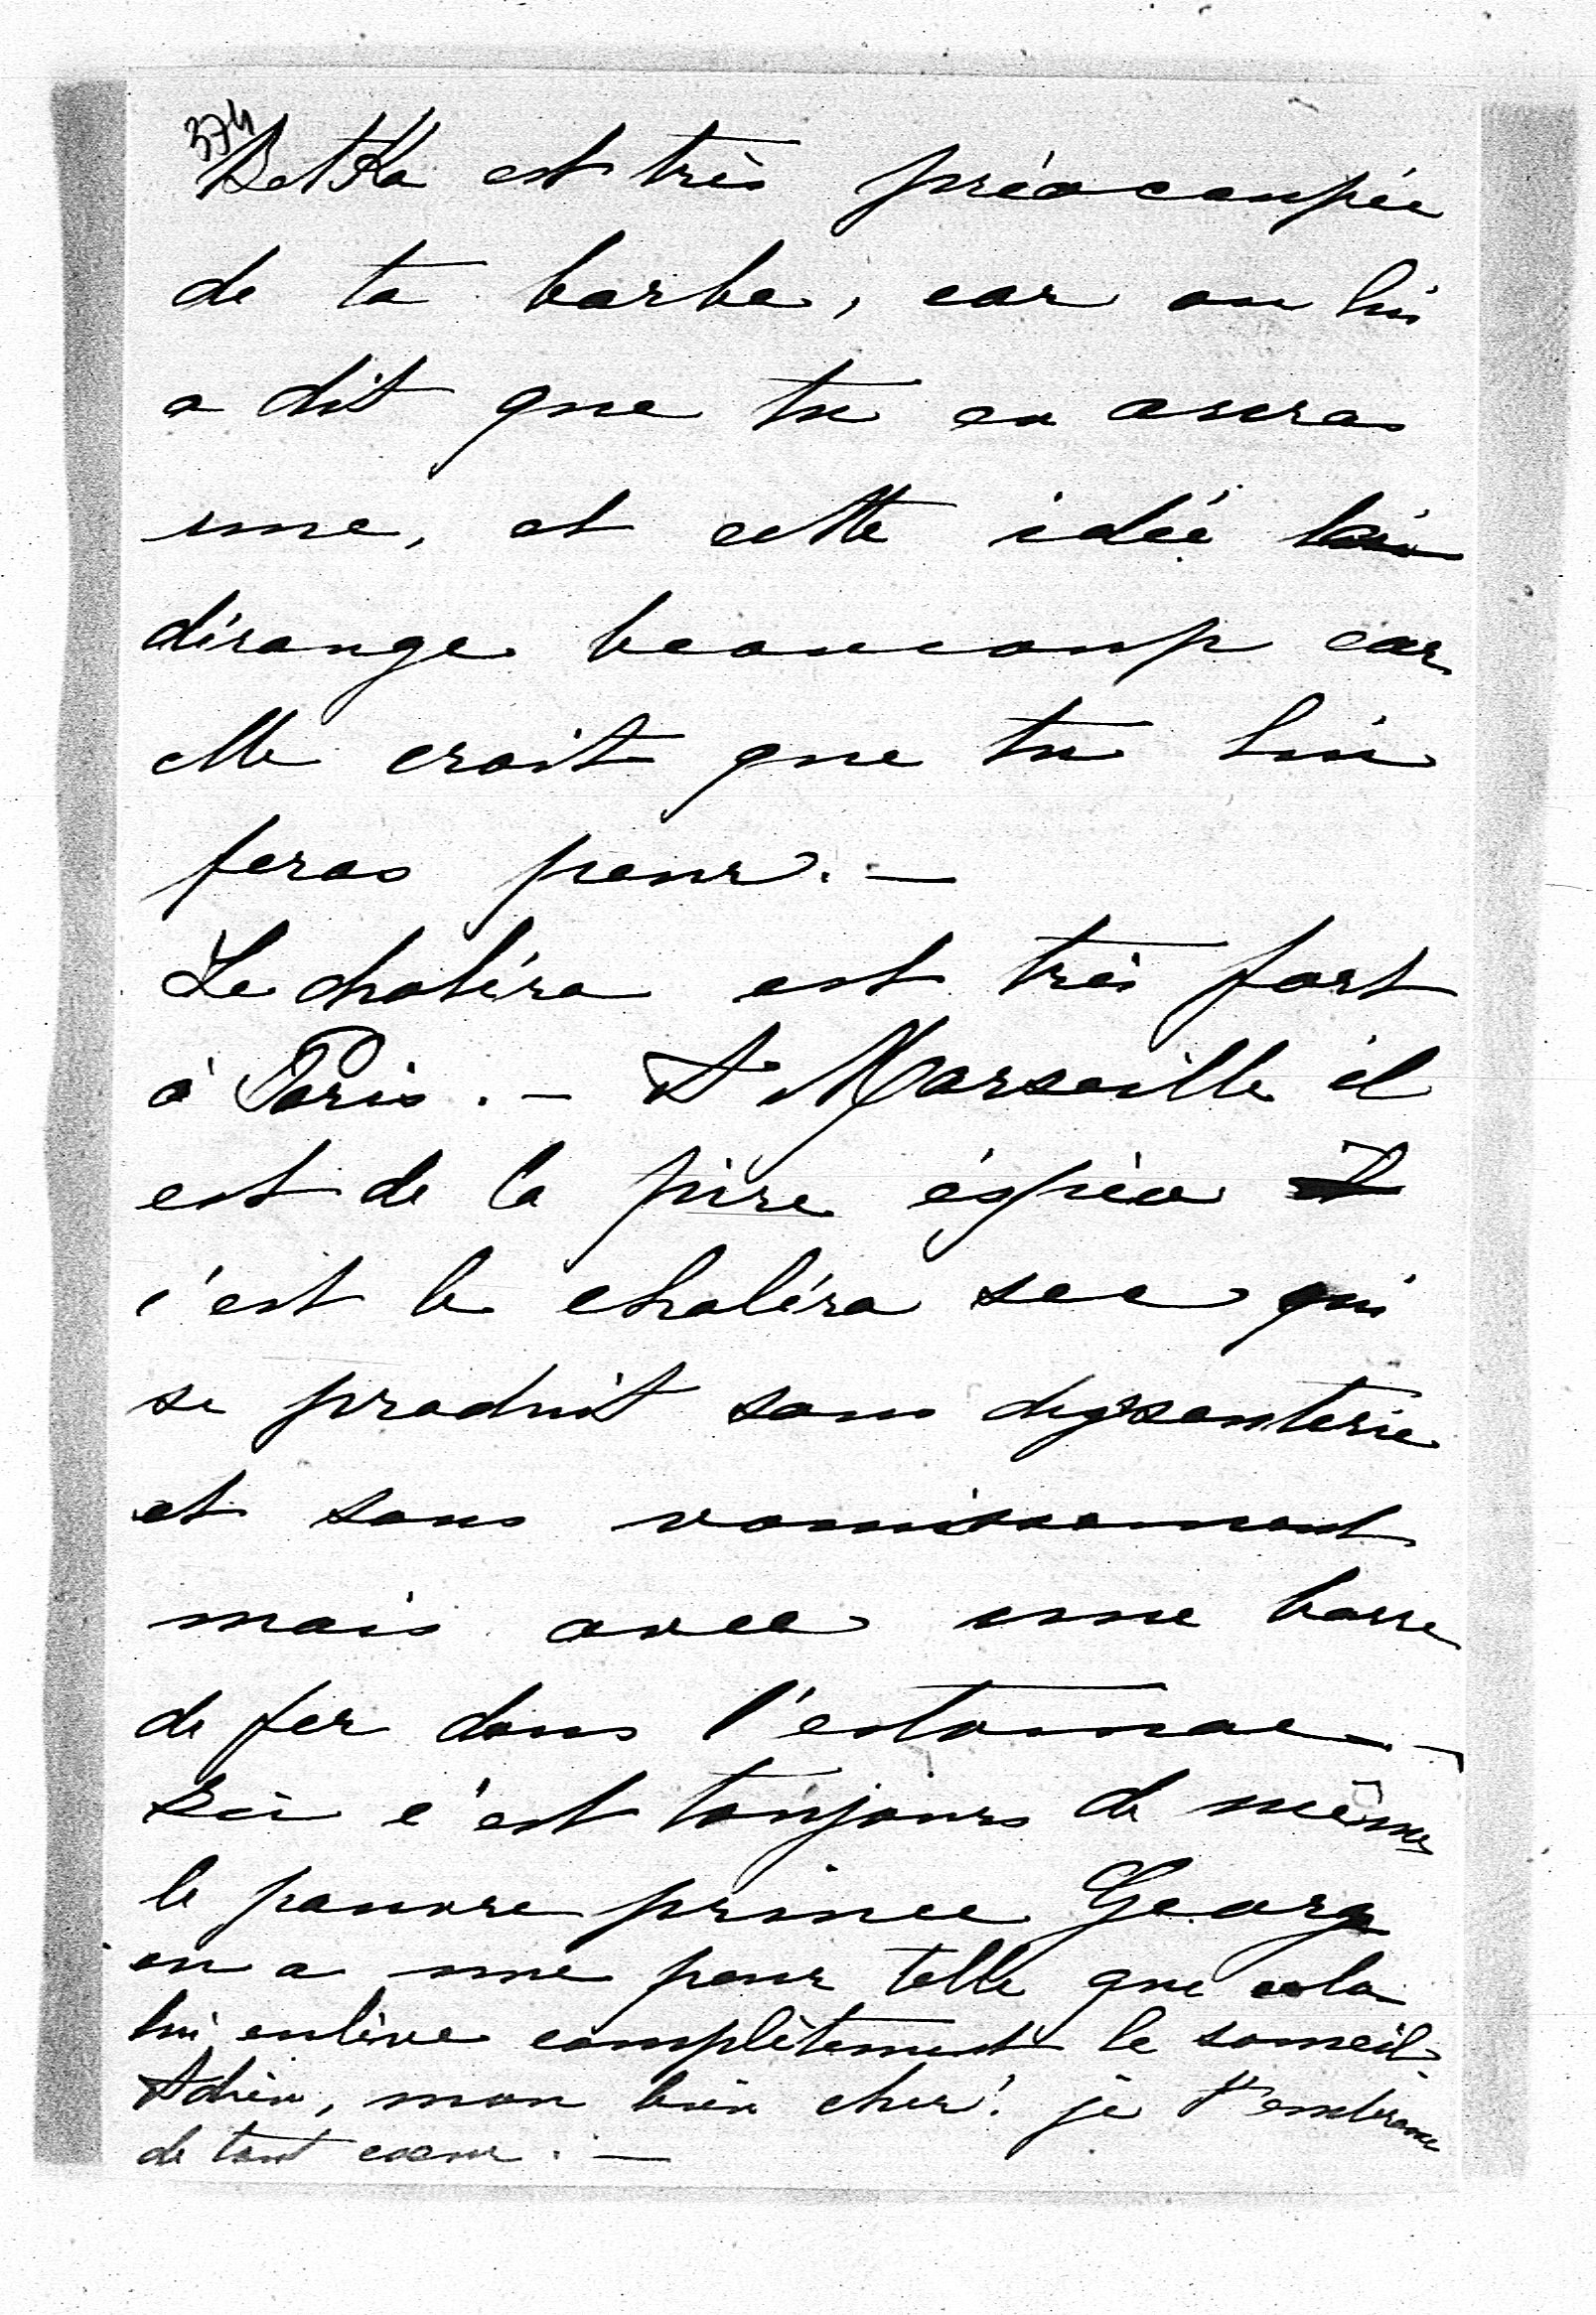 374
Betka est très préoccupée
de ta barbe, car on lui
a dit que tu en auras
une, et cette idée la
dérange beaucoup car
elle croit que tu lui
feras peur. —
Le choléra est très fort
à Paris. — A Marseille il
est de la pire éspèce
c'est le choléra sec qui
se produit sans dyssenterie
et sans vomissement
mais avec une barre
de fer dans l'estomac. —
Ici c'est toujours de même
le pauvre prince Georg
en a une peur telle que cela
lui enlève complètement le someil.
Adieu, mon bien cher! je t'embrasse
de tout coeur. —